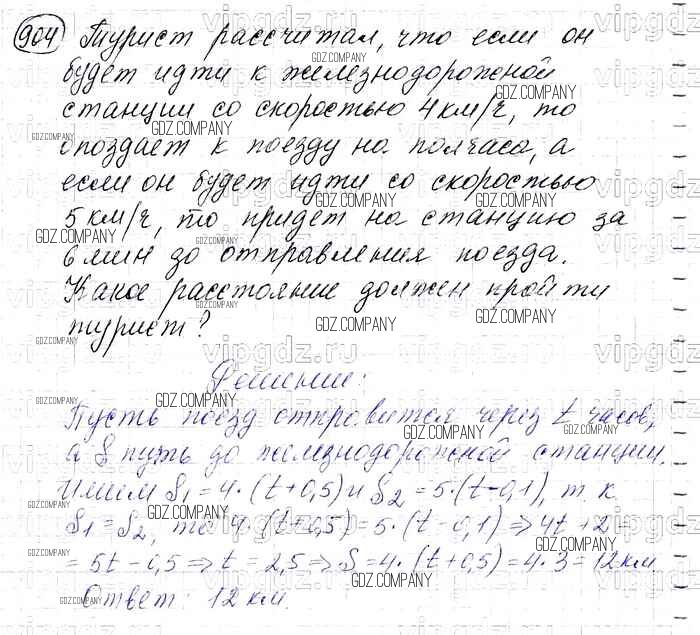 904 Турист рассчитал, что если он
будет идти к железнодорожной
станции со скоростью 4 км/ч, то
опоздает к поезду на полчаса, а
если он будет идти со скоростью
5 км/ч, то придет на станцию за
6 мин до отправления поезда.
Какое расстояние должен пройти
турист?
Решение:
Пусть поезд отправится через t часов,
а S путь до железнодорожной станции.
Имеем S₁ = 4·(t+0,5) и S₂ = 5·(t-0,1), т к
S₁ = S₂, то 4·(t+0,5) = 5·(t-0,1) ⇒ 4t + 2 =
= 5t - 0,5 ⇒ t = 2,5 ⇒ S = 4·(t+0,5) = 4·3 = 12 км
Ответ: 12 км.